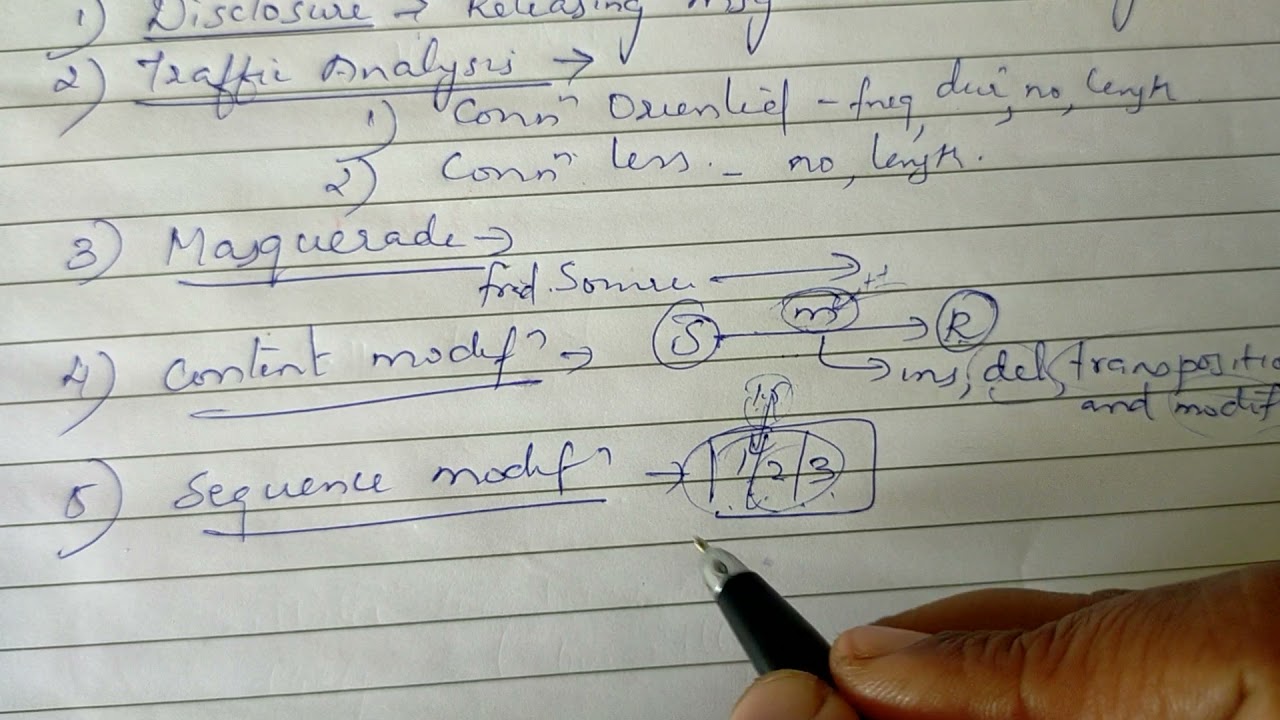 1) Disclosure → Releasing msg
2) Traffic Analysis →
1) Connⁿ Oriented - freq, dur, no, length
2) Connⁿ less. - no, length.
3) Masquerade →
frd. Source →
4) Content modifⁿ → S m R
ins, del, transposition
and modif
5) Sequence modifⁿ → 1 2 3